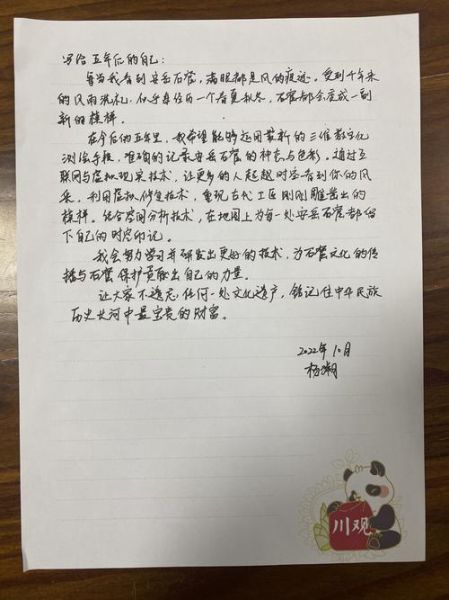 写给五年后的自己：
每当我看到安岳石窟，满眼都是风的痕迹。受到千年来
的风雨洗礼，似乎每经历一个春夏秋冬，石窟都会变成一副
新的模样。
在今后的五年里，我希望能够运用最新的三维数字化
测绘手段，准确的记录安岳石窟的神态与色彩。通过互
联网与虚拟现实技术，让更多的人超越时空看到你的风
采。利用虚拟修复技术，重现古代工匠刚刚雕凿出的
模样。结合空间分析技术，在地图上为每一处安岳石窟都留
下自己的时空印记。
我会努力学习并研发出更好的技术，为石窟文化的传
播与石窟保护贡献出自己的力量。
让大家不遗忘任何一处文化遗产，铭记住中华民族
历史长河中最宝贵的财富。
2022年10月
杨
川观